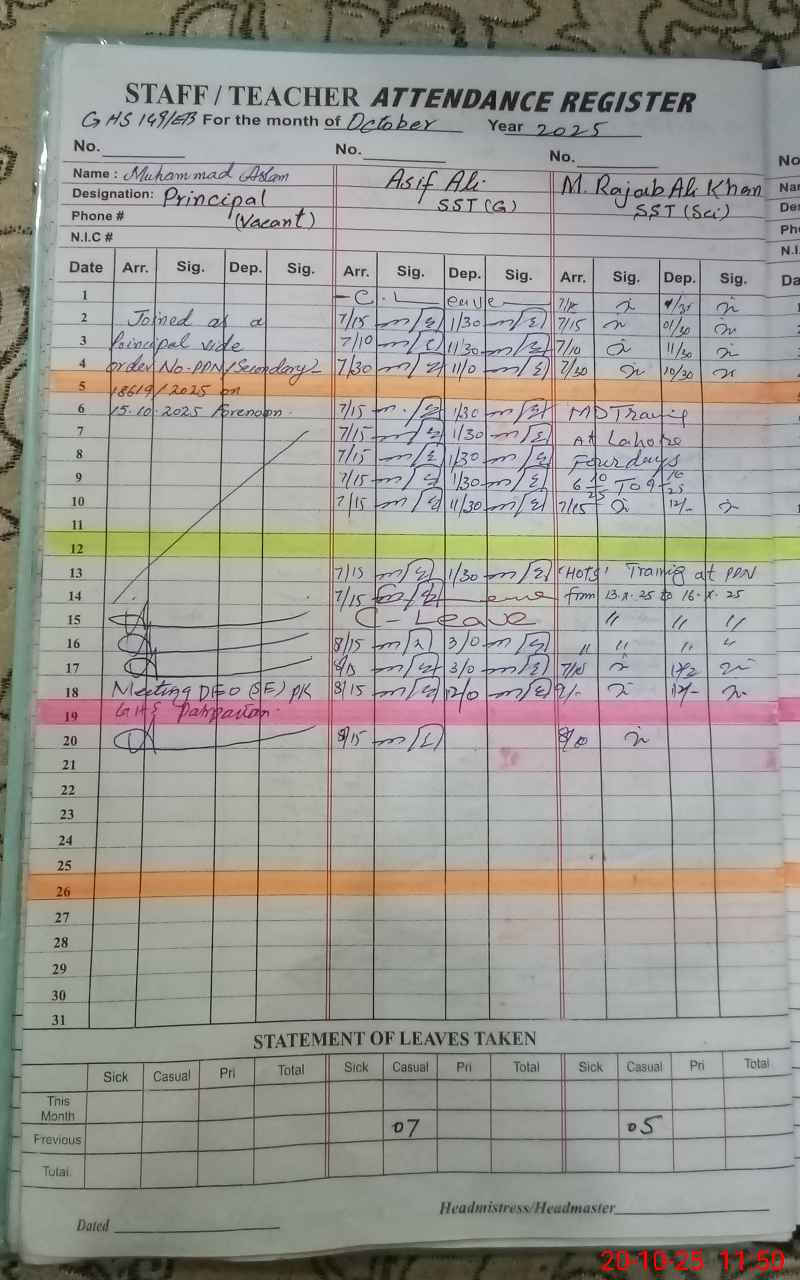 STAFF / TEACHER ATTENDANCE REGISTER
GHS 149/EB For the month of October Year 2025
No. No. No.
Name : Muhammad Aslam Asif Ali. M. Rajab Ali Khan
Designation: Principal SST (G) SST (Sci)
Phone # (Vacant)
N.I.C #
Date Arr. Sig. Dep. Sig. Arr. Sig. Dep. Sig. Arr. Sig. Dep. Sig.
1 C. Leave
2 Joined as a 7/15 1/30 7/15 01/30
3 Principal vide 7/10 11/30 7/10 11/30
4 order No. PPN/Secondary- 7/30 11/0 7/30 10/30
5 18619/2025 on
6 15.10.2025 Forenoon. 7/15 1/30 MD Training
7 7/15 1/30 At Lahore
8 7/15 1/30 Four days
9 7/15 1/30 6 10/25 To 9 10/25
10 7/15 11/30 7/15 12/-
11
12
13 7/15 1/30 'HOTS' Training at PPN
14 7/15 from 13.X.25 to 16.X.25
15 C- Leave " " "
16 8/15 3/0 " " " "
17 3/0
18 Meeting DEO (SE) PK 8/15 12/0 9/- 12/-
19 GHS
20 8/15
21
22
23
24
25
26
27
28
29
30
31
STATEMENT OF LEAVES TAKEN
Sick Casual Pri Total Sick Casual Pri Total Sick Casual Pri Total
This Month
Previous 07 05
Total.
Headmistress/Headmaster
Dated
20-10-25 11:50